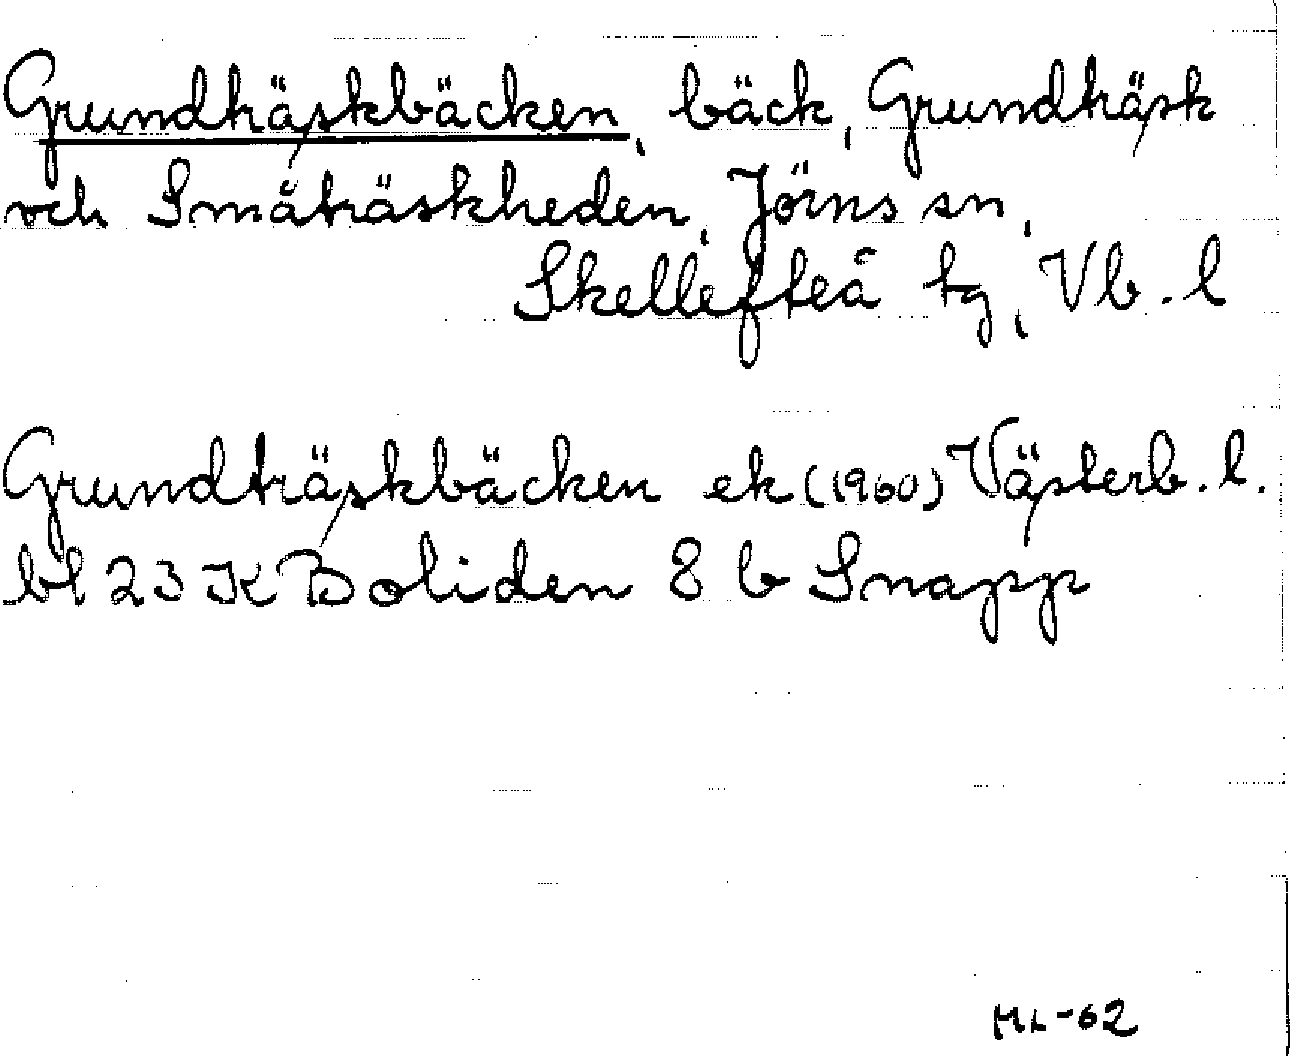 Grundträskbäcken, bäck, Grundträsk
och Småträskheden, Jörns sn,
Skellefteå tg, Vb. l
Grundträskbäcken ek (1960) Västerb. l.
bl 23 K Boliden 8 b Snapp
ML-62